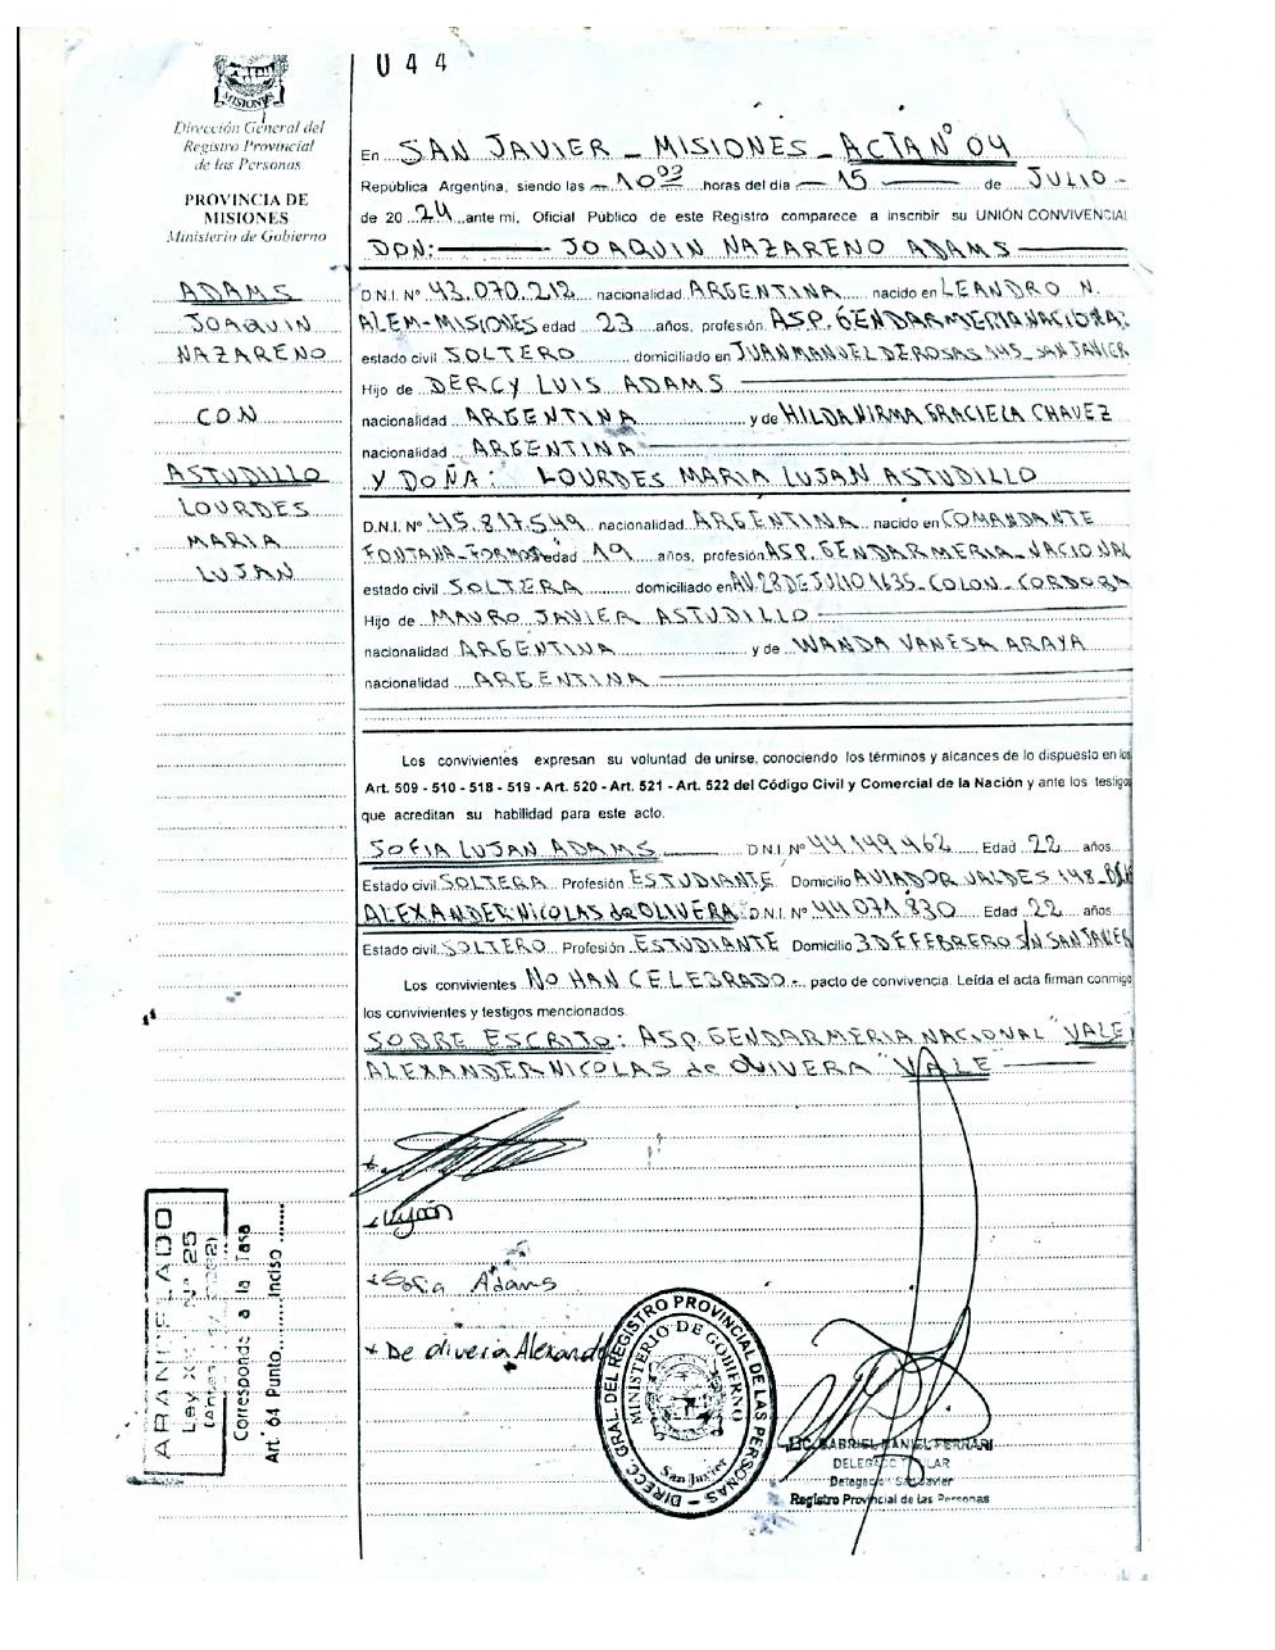 044
MISIONES
Dirección General del
Registro Provincial
de las Personas
PROVINCIA DE
MISIONES
Ministerio de Gobierno
ADAMS
JOAQUIN
NAZARENO
CON
ASTUDILLO
LOURDES
MARIA
LUJAN
En SAN JAVIER - MISIONES - ACTA N° 04
República Argentina, siendo las 10 03 horas del día 15 de JULIO
de 20 24 ante mi, Oficial Público de este Registro comparece a inscribir su UNIÓN CONVIVENCIAL
DON: JOAQUIN NAZARENO ADAMS
D.N.I. N° 43.070.212 nacionalidad ARGENTINA nacido en LEANDRO N.
ALEM-MISIONES edad 23 años, profesión ASP. GENDARMERIA NACIONAL
estado civil SOLTERO domiciliado en JUAN MANUEL DE ROSAS 145 - SAN JAVIER
Hijo de DERCY LUIS ADAMS
nacionalidad ARGENTINA y de HILDA NIRMA GRACIELA CHAVEZ
nacionalidad ARGENTINA
Y DOÑA: LOURDES MARIA LUJAN ASTUDILLO
D.N.I. N° 45.817.549 nacionalidad ARGENTINA nacido en COMANDANTE
FONTANA-FORMOSA edad 19 años, profesión ASP. GENDARMERIA-NACIONAL
estado civil SOLTERA domiciliado en AV. 28 DE JULIO 1635 - COLON - CORDOBA
Hijo de MAURO JAVIER ASTUDILLO
nacionalidad ARGENTINA y de WANDA VANESA ARAYA
nacionalidad ARGENTINA
Los convivientes expresan su voluntad de unirse, conociendo los términos y alcances de lo dispuesto en los
Art. 509 - 510 - 518 - 519 - Art. 520 - Art. 521 - Art. 522 del Código Civil y Comercial de la Nación y ante los testigos
que acreditan su habilidad para este acto.
SOFIA LUJAN ADAMS D.N.I. N° 44.149.462 Edad 22 años
Estado civil SOLTERA Profesión ESTUDIANTE Domicilio AVIADOR VALDES 148
ALEXANDER NICOLAS de OLIVERA D.N.I. N° 44.071.830 Edad 22 años
Estado civil SOLTERO Profesión ESTUDIANTE Domicilio 3 DE FEBRERO S/N SAN JAVIER
Los convivientes NO HAN CELEBRADO - pacto de convivencia. Leída el acta firman conmigo
los convivientes y testigos mencionados.
SOBRE ESCRITO: ASP. GENDARMERIA NACIONAL "VALE"
ALEXANDER NICOLAS de OLIVERA "VALE"
Lujan
Sofia Adams
De olivera Alexander
ARANCELADO
Ley N° 25
Corresponde a la Tasa
Art. 64 Punto......... Inciso ......
DIRECC. GRAL. DEL REGISTRO PROVINCIAL DE LAS PERSONAS
MINISTERIO DE GOBIERNO
San Javier
LIC. GABRIEL FERRARI
Delegación San Javier
Registro Provincial de las Personas